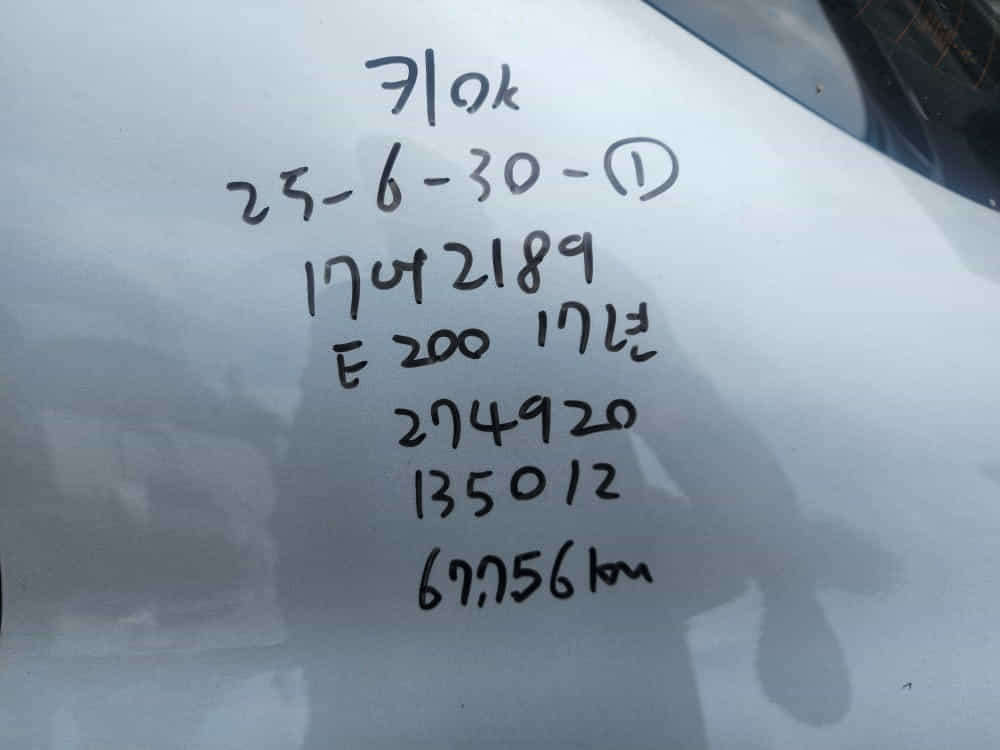 키ok
25-6-30-①
17어2189
E200 17년
274920
135012
67,756km